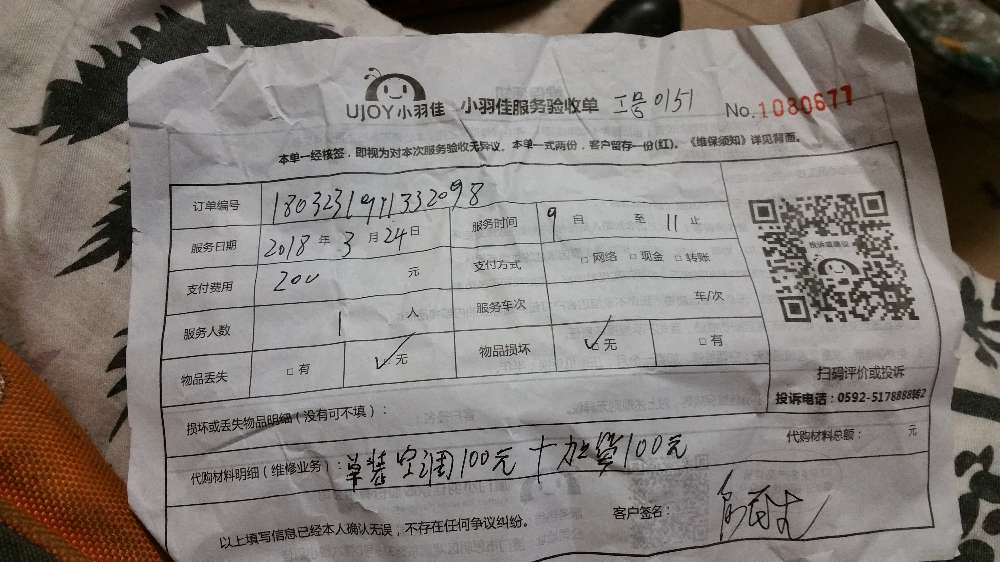 UJOY小羽佳 小羽佳服务验收单 工号0151 No.1080677
本单一经核签,即视为对本次服务验收无异议。本单一式两份,客户留存一份(红)。《维保须知》详见背面。
订单编号 1803231911332098
服务日期 2018年3月24日 服务时间 9自 至 11止
支付费用 200 元 支付方式 □网络 □现金 □转账
服务人数 1 人 服务车次 车/次
物品丢失 □有 ☑无 物品损坏 ☑无 □有
投诉或建议
扫码评价或投诉
投诉电话:0592-5178888转2
损坏或丢失物品明细(没有可不填):
代购材料明细(维修业务):单装空调100元+加氟100元 代购材料总额: 元
以上填写信息已经本人确认无误,不存在任何争议纠纷。 客户签名: